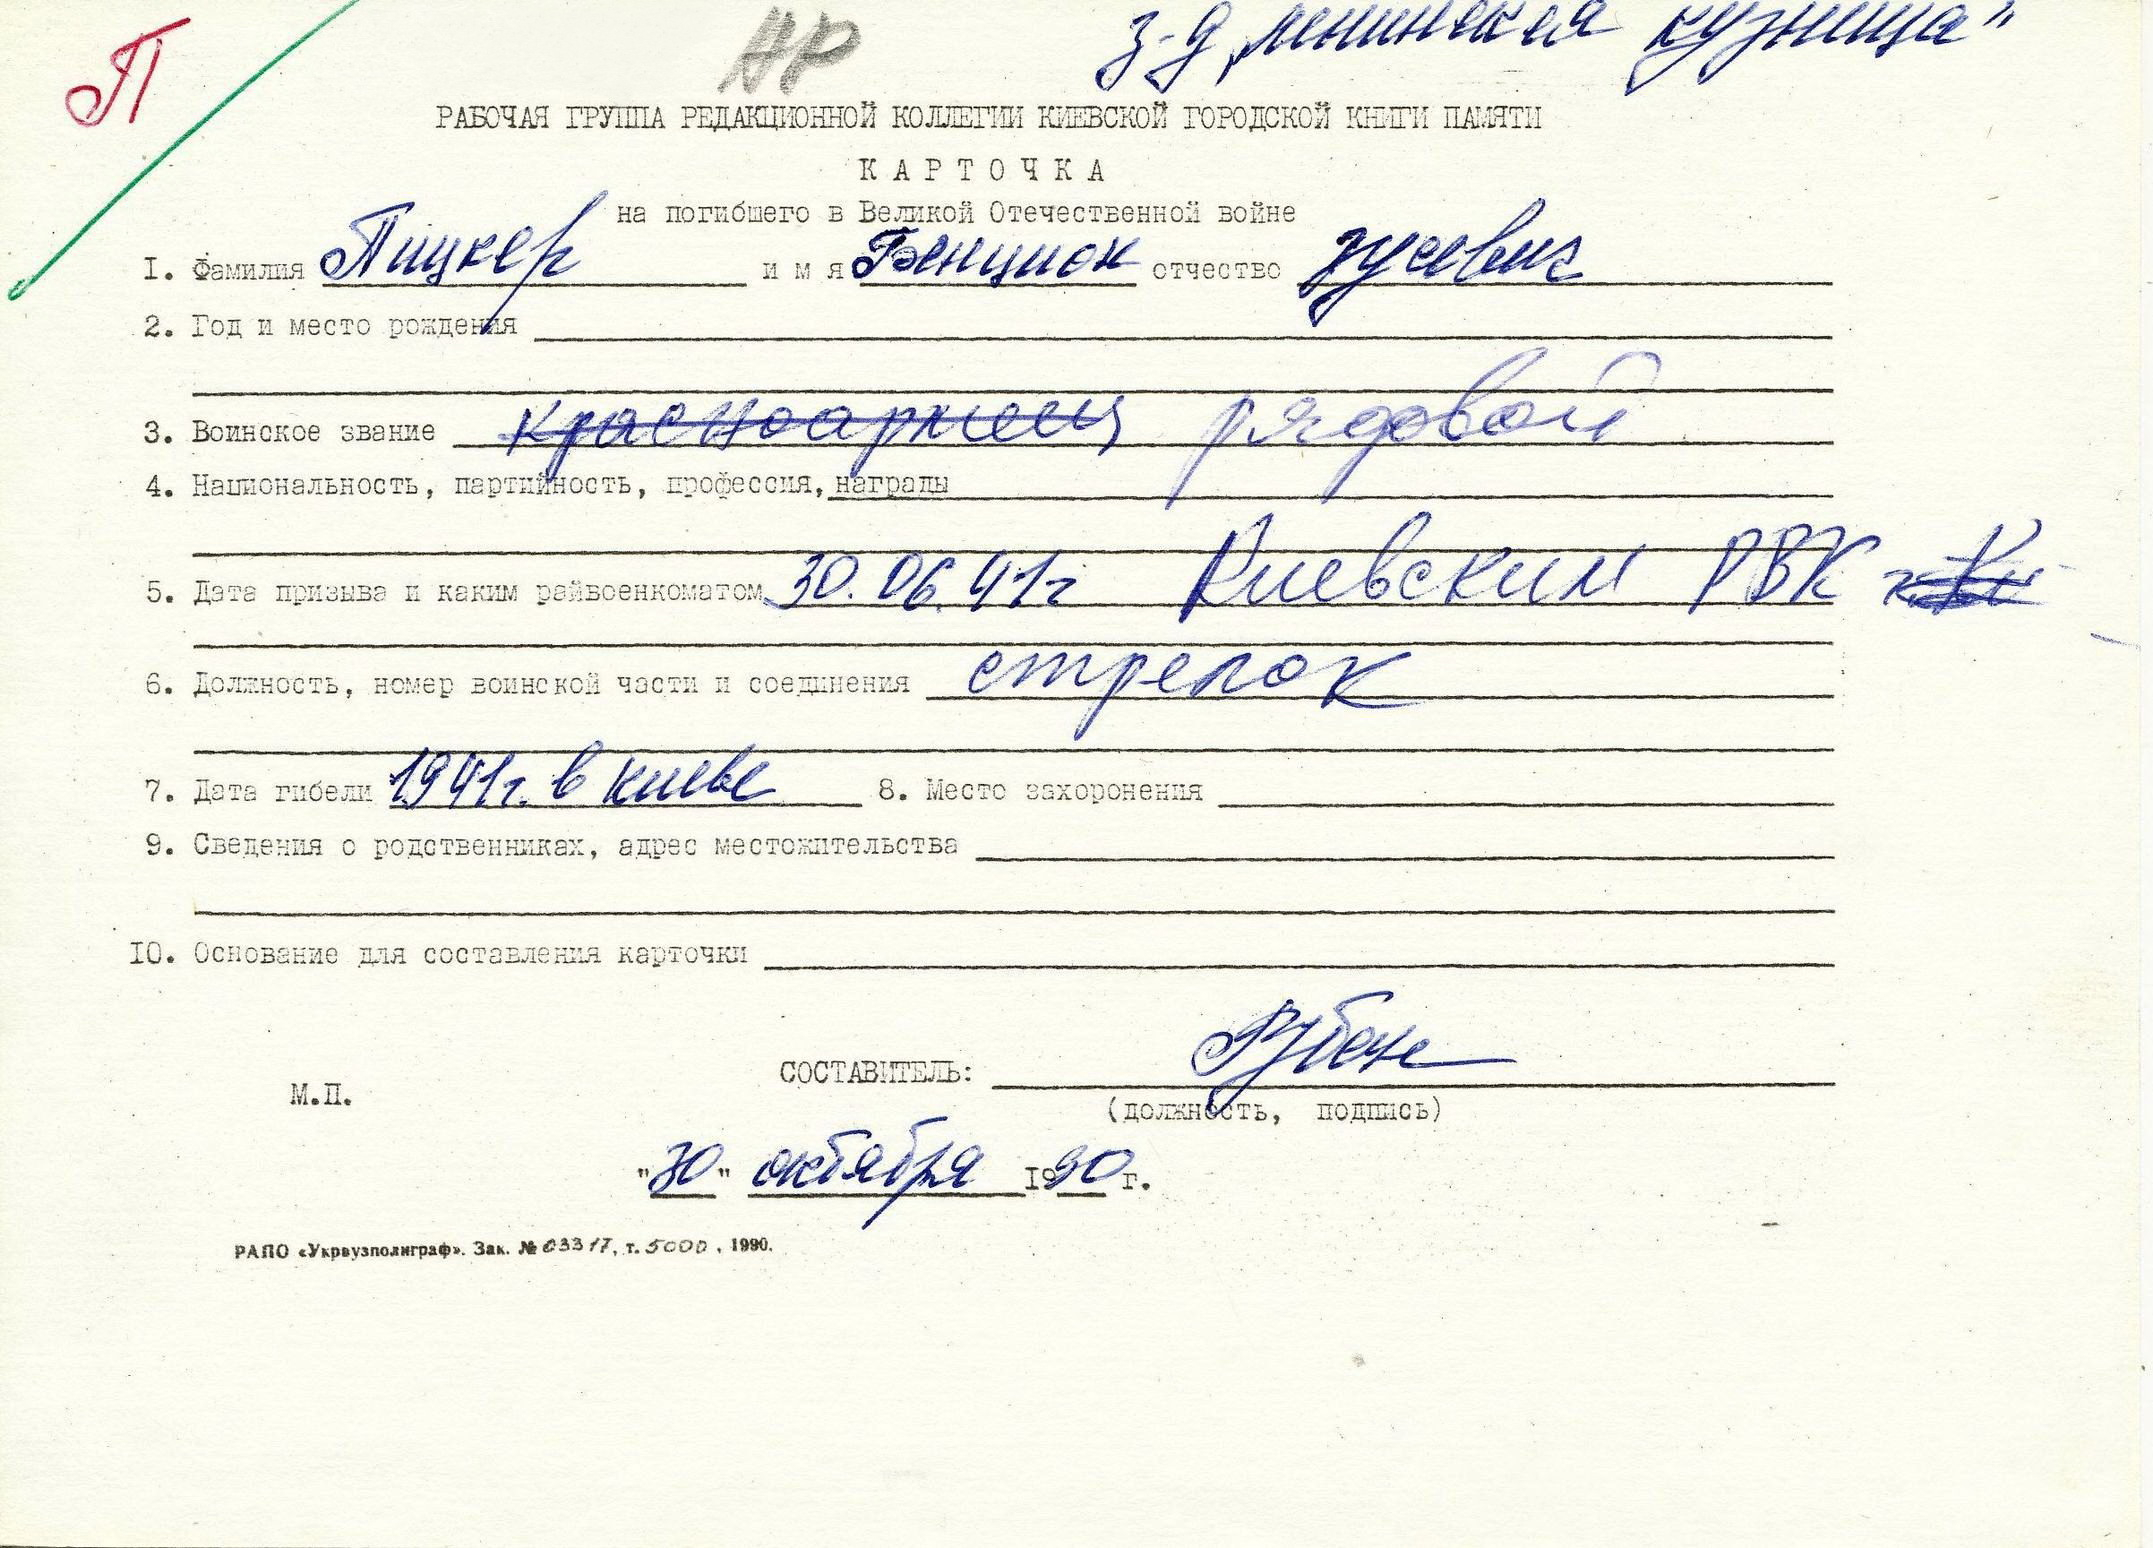 П НР з-д „Ленинская кузница"
РАБОЧАЯ ГРУППА РЕДАКЦИОННОЙ КОЛЛЕГИИ КИЕВСКОЙ ГОРОДСКОЙ КНИГИ ПАМЯТИ
КАРТОЧКА
на погибшего в Великой Отечественной войне
I. Фамилия Пицкер имя Бенцион отчество Зусевич
2. Год и место рождения
3. Воинское звание красноармеец рядовой
4. Национальность, партийность, профессия, награды
5. Дата призыва и каким райвоенкоматом 30.06.41г Киевским РВК
6. Должность, номер воинской части и соединения стрелок
7. Дата гибели 1941г. в Киеве 8. Место захоронения
9. Сведения о родственниках, адрес местожительства
IO. Основание для составления карточки
СОСТАВИТЕЛЬ:
М.П.
(должность, подпись)
"30" октября 1990 г.
РАПО «Укрвузполиграф». Зак. № 03317, т. 5000, 1990.